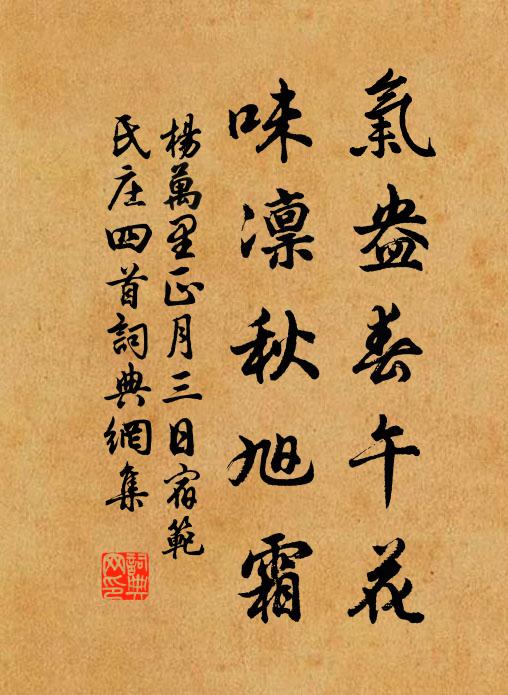 氣盎春午花
味凛秋旭霜
楊萬里正月三日宿範
氏庄四首詞典網集
詞典
网印